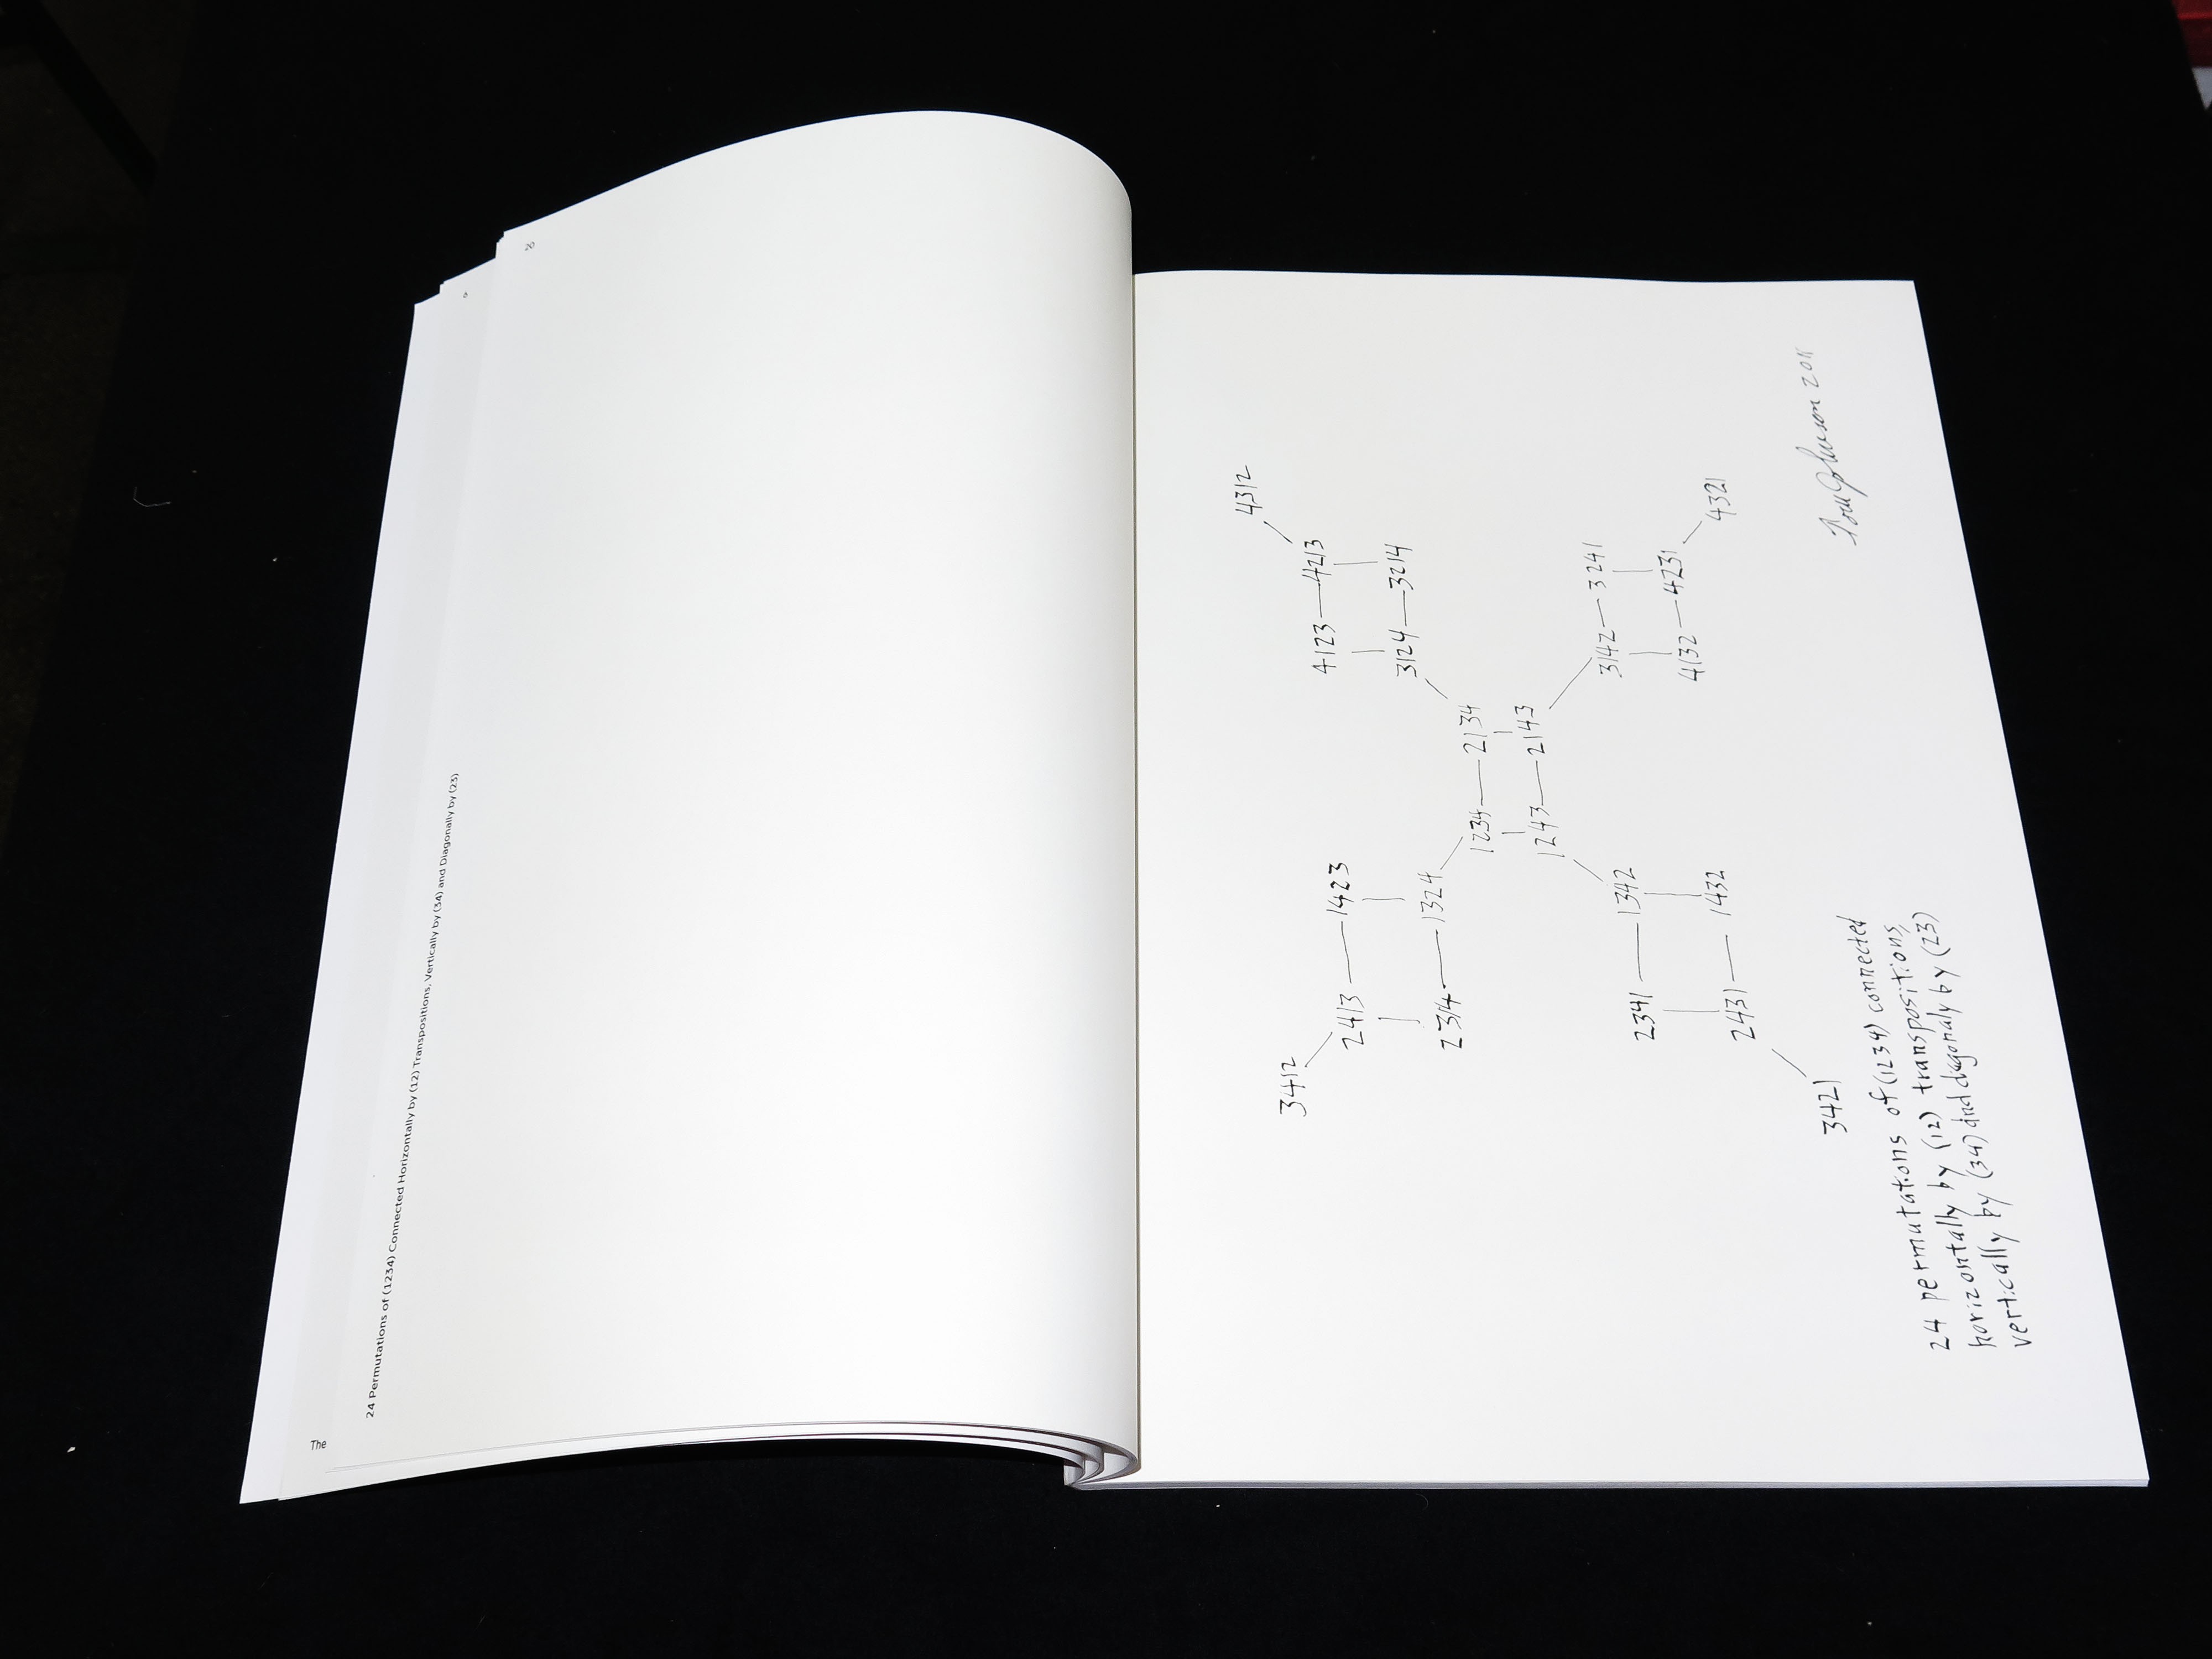 20
The
24 Permutations of (1234) Connected Horizontally by (12) Transpositions, Vertically by (34) and Diagonally by (23)
3412 4312
2413 1423 4123 4213
2314 1324 3124 3214
1234 2134
1243 2143
2341 1342 3142 3241
2431 1432 4132 4231
3421 4321
24 permutations of (1234) connected
horizontally by (12) transpositions,
vertically by (34) and diagonaly by (23)
Tom Johnson